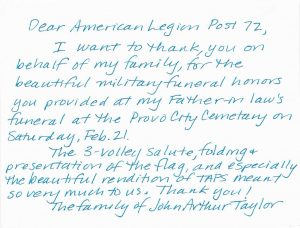 Dear American Legion Post 72,
I want to thank, you on
behalf of my family, for the
beautiful military funeral honors
you provided at my Father-in law's
funeral at the Provo City Cemetary on
Saturday, Feb. 21.
The 3-volley salute, folding &
presentation of the flag, and especially
the beautiful rendition of TAPS meant
so very much to us. Thank you!
The family of John Arthur Taylor